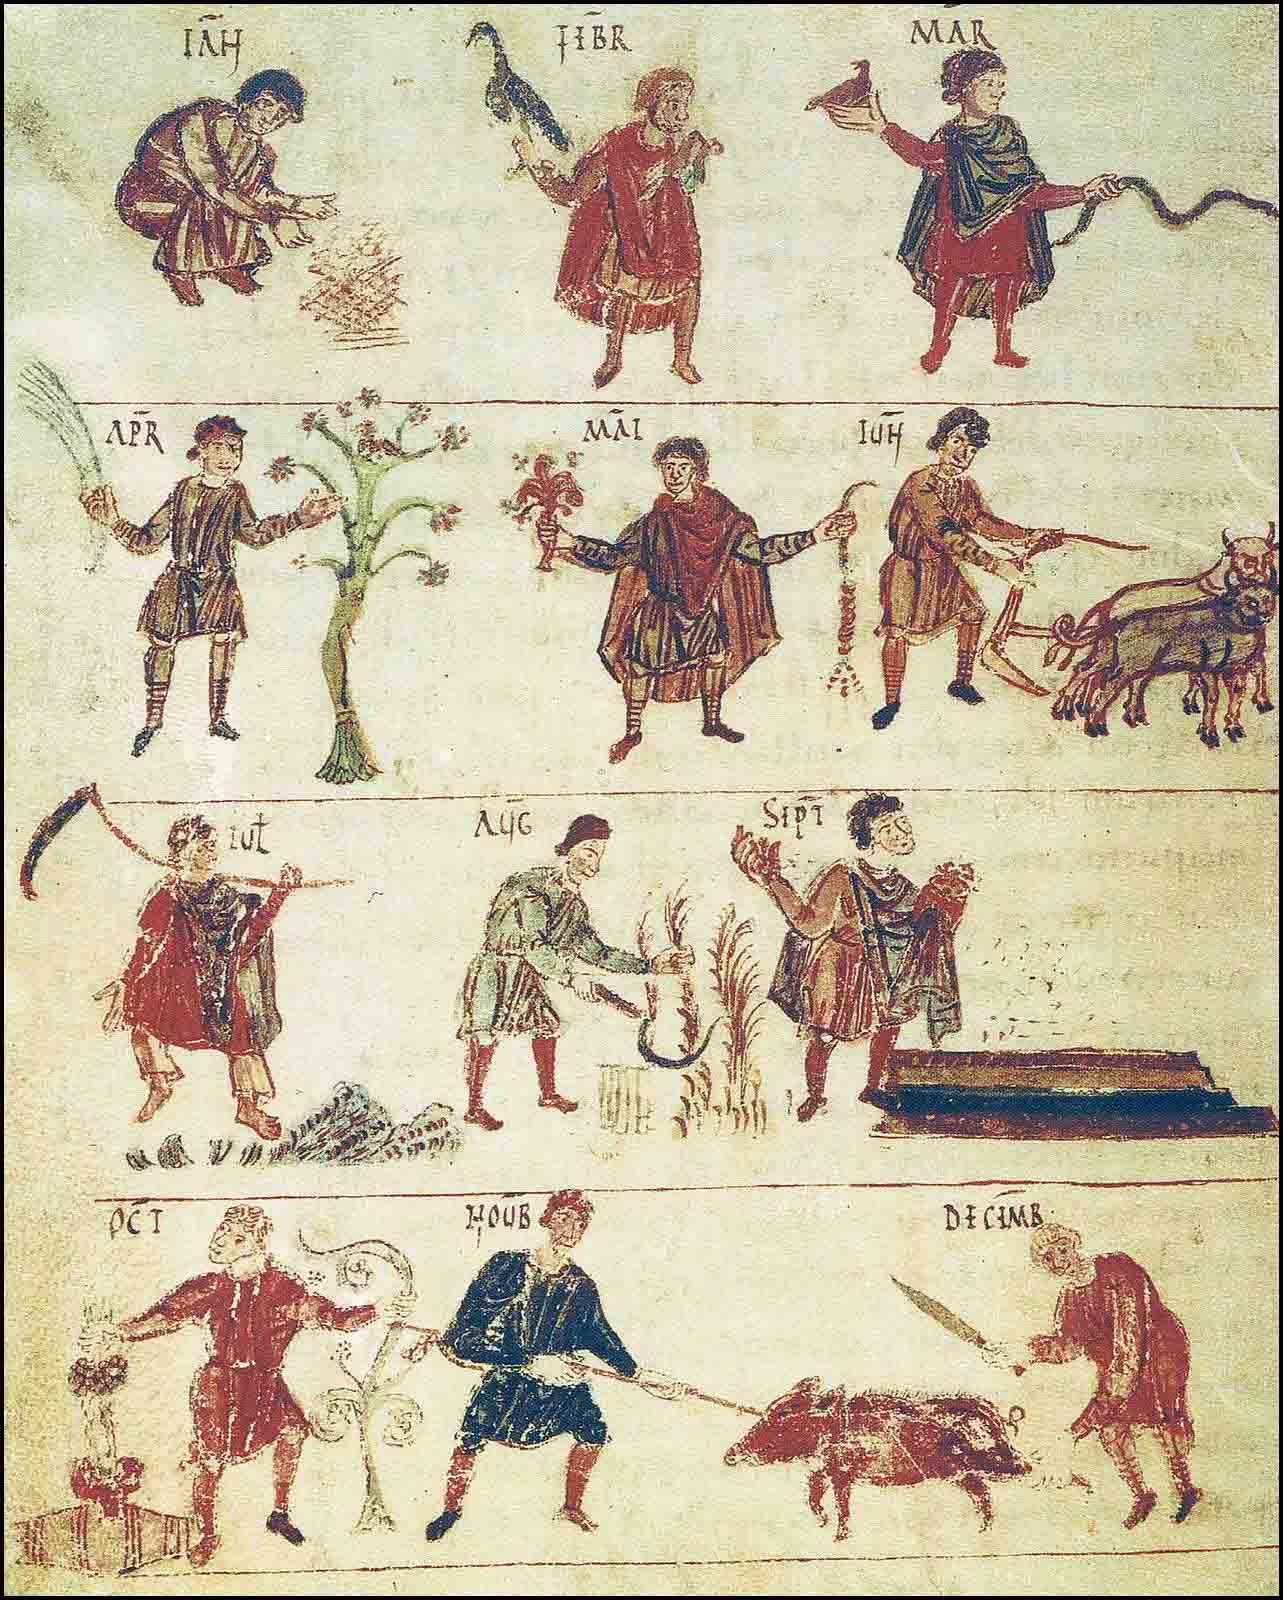 IĀN
FEB̄R
MĀR
AP̄R
MĀI
IŪN
IUŁ
AŪG
SEP̄T
OC̄T
NOŪB
DECEM̄B